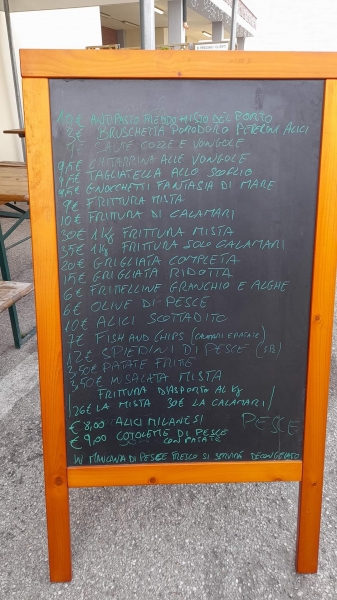 10€ ANTIPASTO FREDDO MISTO DEL PORTO
2€ BRUSCHETTA POMODORO PEPERONI ALICI
COZZE E VONGOLE
9,5€ CHITARRINA ALLE VONGOLE
9,5€ TAGLIATELLA ALLO SCOGLIO
9,5€ GNOCCHETTI FANTASIA DI MARE
9€ FRITTURA MISTA
10€ FRITTURA DI CALAMARI
30€ 1 Kg FRITTURA MISTA
35€ 1 Kg FRITTURA SOLO CALAMARI
20€ GRIGLIATA COMPLETA
15€ GRIGLIATA RIDOTTA
6€ FRITTELLINE GRANCHIO E ALGHE
6€ OLIVE DI PESCE
10€ ALICI SCOTTADITO
7€ FISH AND CHIPS
12€ SPIEDINI DI PESCE
3,50€ PATATE FRITTE
3,50€ INSALATA MISTA
FRITTURA D'ASPORTO AL KG
26€ LA MISTA 30€ LA CALAMARI
€ 8,00 ALICI MILANESI
€ 9,00 COTOLETTE DI PESCE PESCE
CON PATATE
IN MANCANZA DI PESCE FRESCO SI SERVIRÀ DECONGELATO